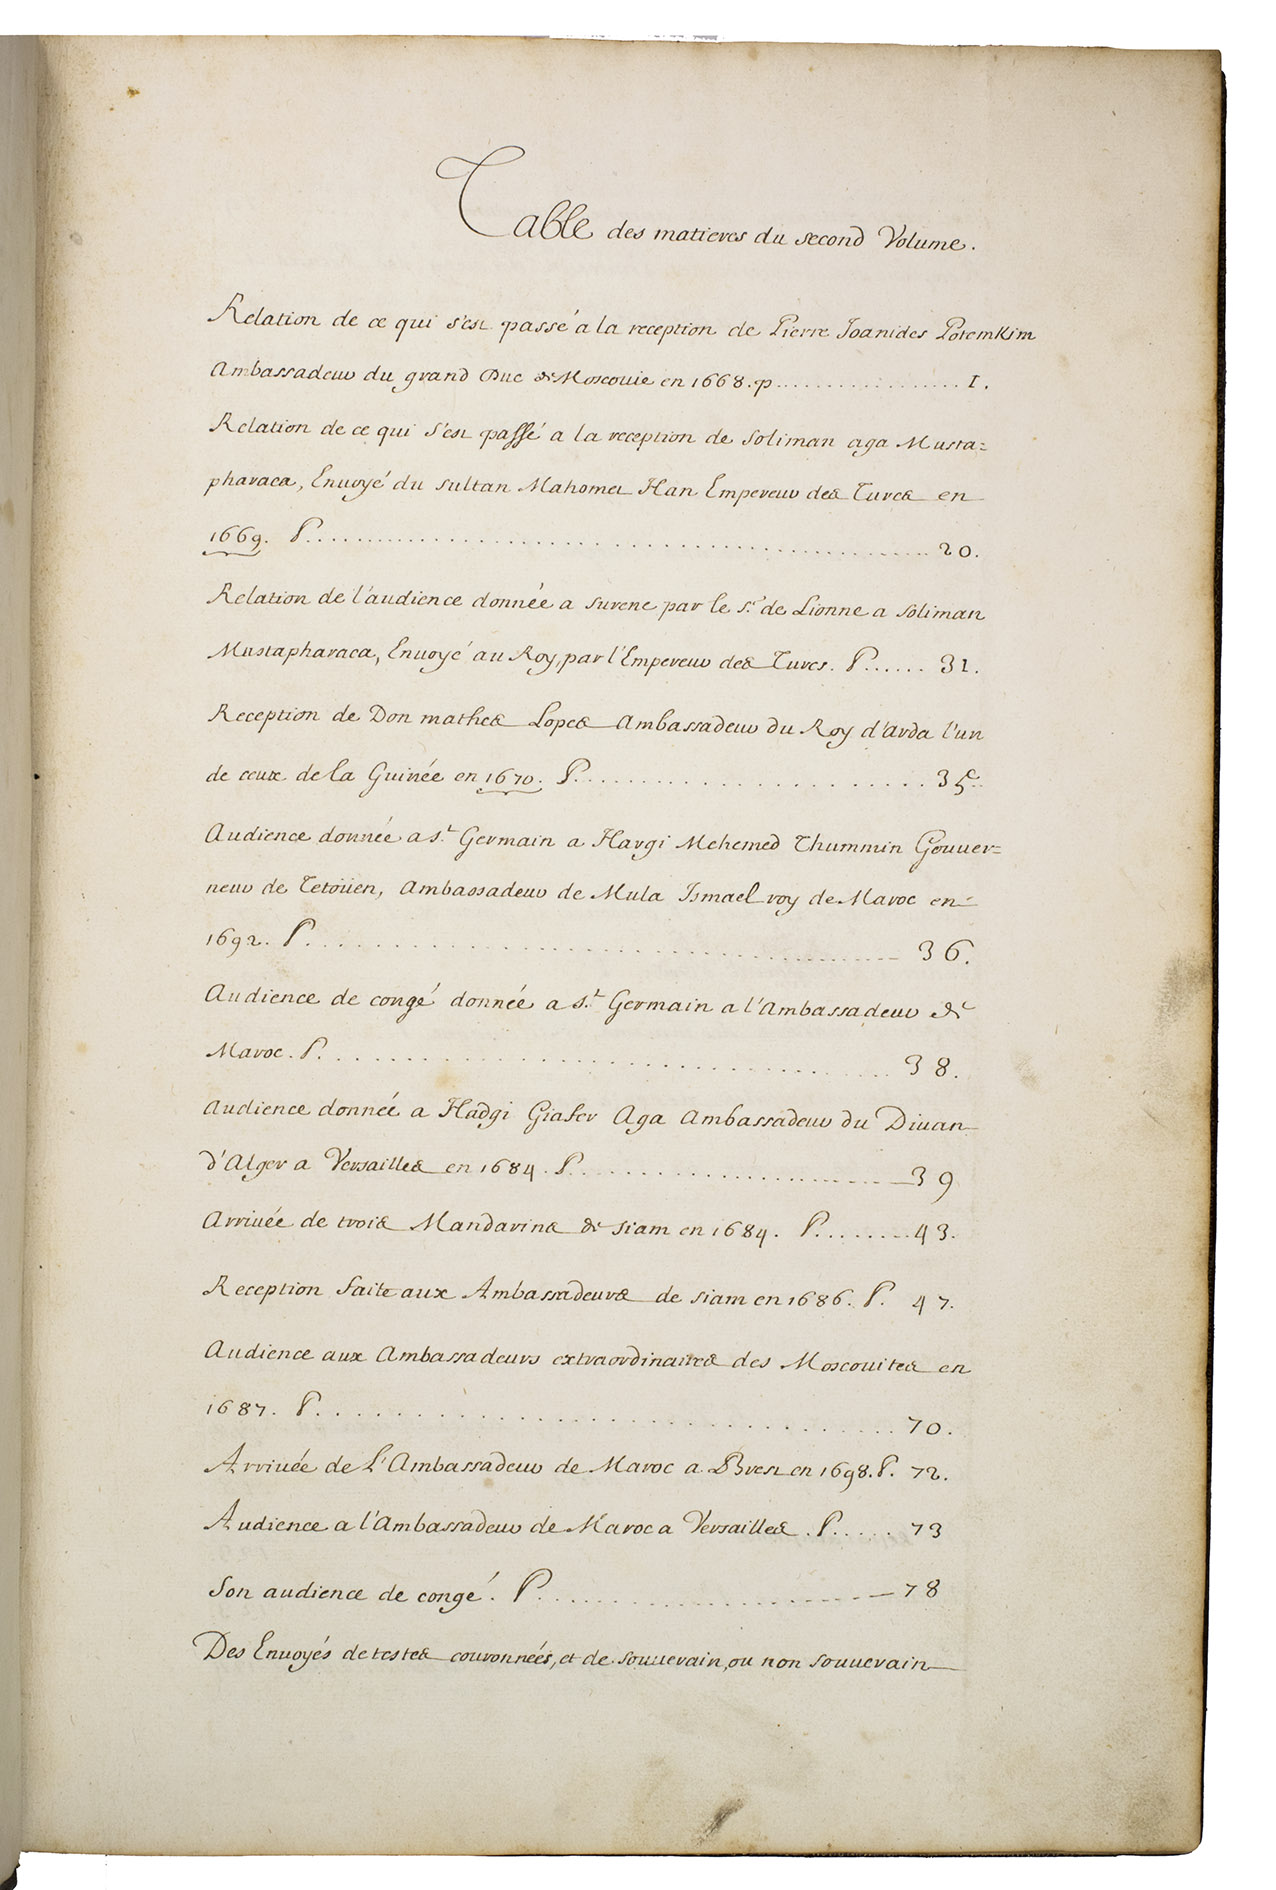 Table des matieres du second Volume.
Relation de ce qui s'est passé a la reception de Pierre Joanides Potemkim
Ambassadeur du grand Duc de Moscouie en 1668. p.................1.
Relation de ce qui s'est passé a la reception de Soliman aga Musta=
pharaca, Envoyé du sultan Mahomet Han Empereur des Turcs en
1669. P.................20.
Relation de l'audience donnée a surene par le Sr. de Lionne a Soliman
Mustapharaca, Envoyé au Roy, par l'Empereur des Turcs. P......31.
Reception de Don matheo Lopes Ambassadeur du Roy d'Arda l'un
de ceux de la Guinée en 1670. P.................35.
Audience donnée a St. Germain a Hargi Mehemed Thummin Gouuer=
neur de Tetoüen, Ambassadeur de Mula Ismael roy de Maroc en
1692. P.................36.
Audience de congé donnée a St. Germain a l'Ambassadeur de
Maroc. P.................38.
Audience donnée a Hadgi Giafer Aga Ambassadeur du Diuan
d'Alger a Versailles en 1684. P.................39
Arriuée de trois Mandarins de siam en 1684. P........43.
Reception faite aux Ambassadeurs de siam en 1686. P. 47.
Audience aux Ambassadeurs extraordinaires des Moscouites en
1687. P.................70.
Arriuée de L'Ambassadeur de Maroc a Brest en 1698. P. 72.
Audience a l'Ambassadeur de Maroc a Versailles. P.....73
Son audience de congé. P.................78
Des Envoyés de testes couronnées, et de souuerain, ou non souuerain